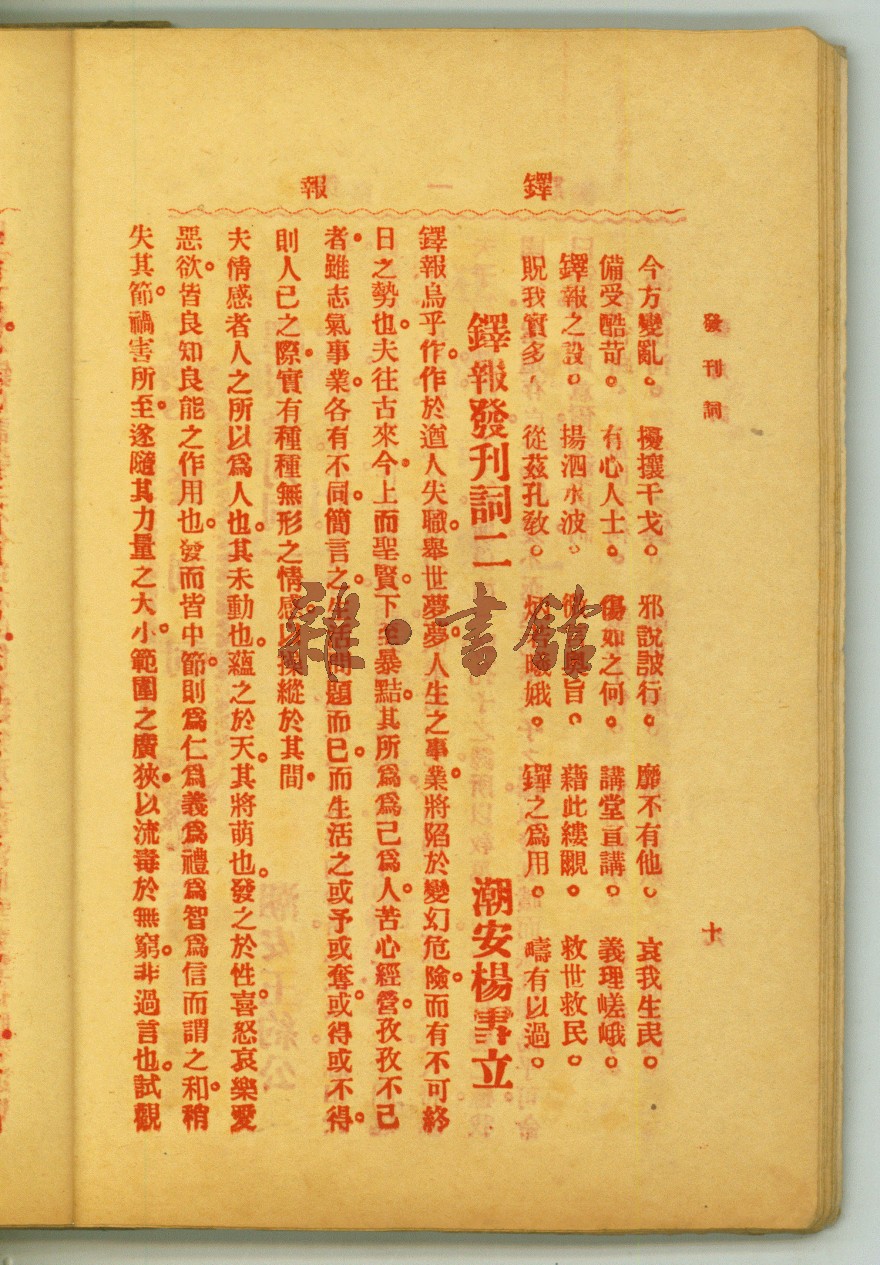 鐸報
發刊詞
十
今方變亂。 擾攘干戈。 邪說詖行。 靡不有他。 哀我生民。
備受酷苛。 有心人士。 傷如之何。 講堂宣講。 義理嵯峨。
鐸報之設。 揚泗水波。 微言奧旨。 藉此縷覼。 救世救民。
貺我實多。 從茲孔敎。 炳若曦娥。 鐸之爲用。 疇有以過。
鐸報發刊詞二 潮安楊雲立
鐸報烏乎作。作於遒人失職。舉世夢夢。人生之事業。將陷於變幻危險。而有不可終
日之勢也。夫往古來今。上而聖賢。下至暴黠。其所爲爲己爲人。苦心經營。孜孜不已
者。雖志氣事業。各有不同。簡言之。生活問題而已。而生活之或予或奪。或得或不得。
則人已之際。實有種種無形之情感。以操縱於其間。
夫情感者人之所以爲人也。其未動也。蘊之於天。其將萌也。發之於性。喜怒哀樂愛
惡欲。皆良知良能之作用也。發而皆中節。則爲仁爲義爲禮爲智爲信而謂之和。稍
失其節。禍害所至。遂隨其力量之大小。範圍之廣狹。以流毒於無窮。非過言也。試觀
雜·書館